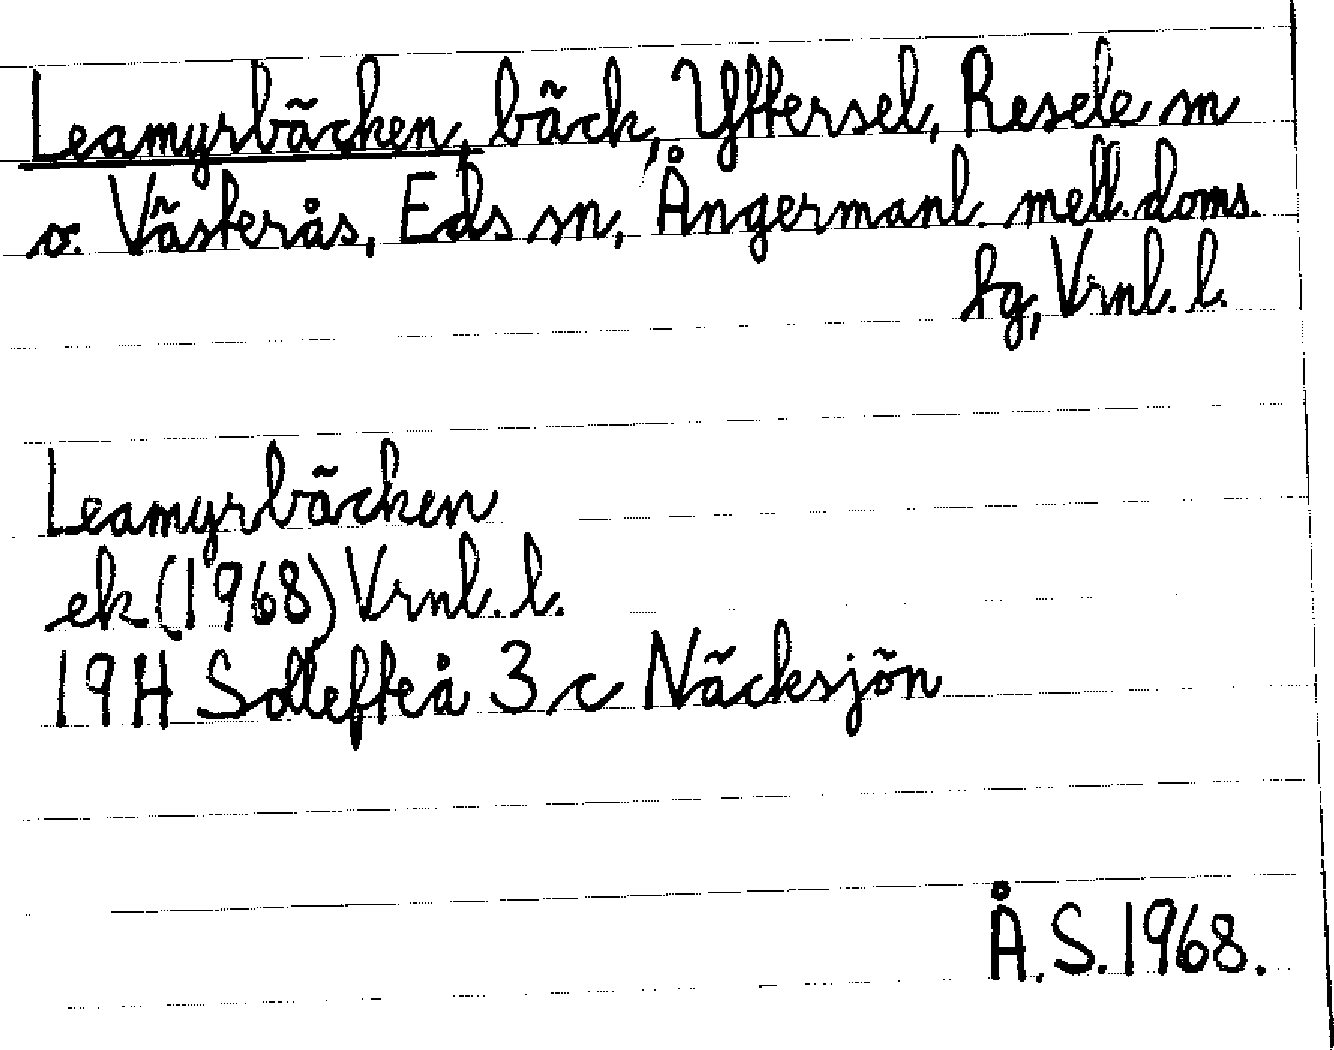 Leamyrbäcken, bäck, Yttersel, Resele sn
o. Västerås, Eds sn, Ångermanl. mell. doms.
hg, Vrnl. l.
Leamyrbäcken
ek (1968) Vrnl. l.
19H Sollefteå 3 c Näcksjön
Å.S. 1968.